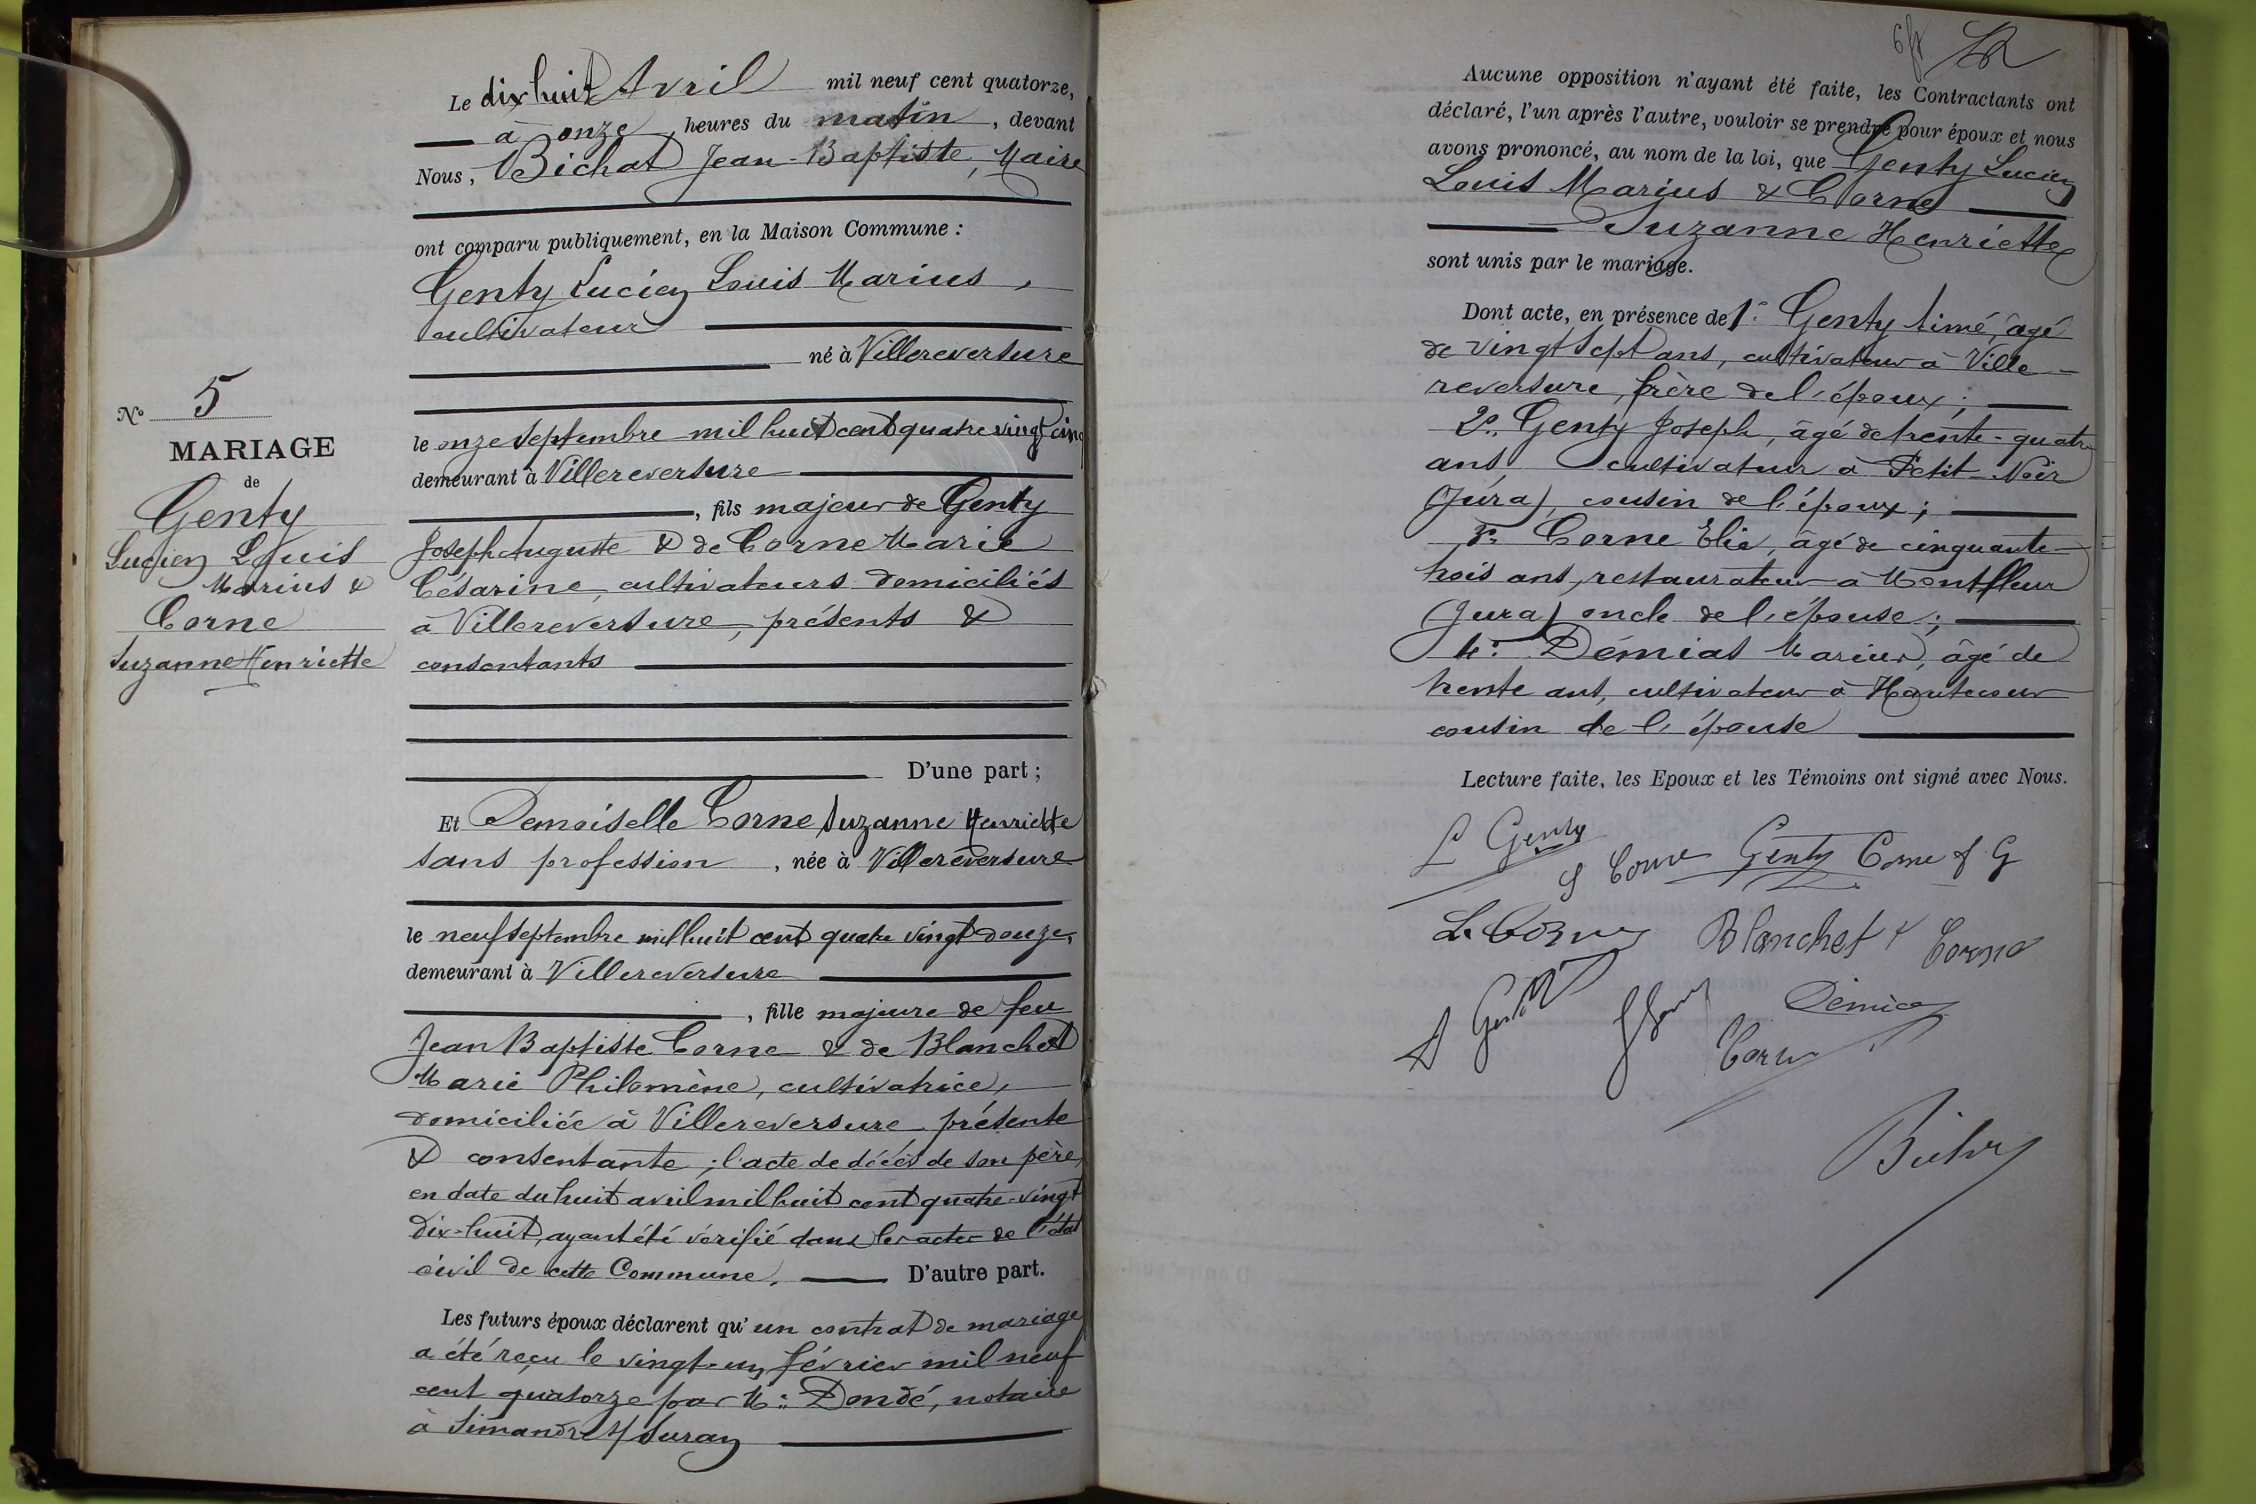 Le dix huit Avril mil neuf cent quatorze,
à onze heures du matin, devant
Nous, Bichat Jean-Baptiste, Maire
ont comparu publiquement, en la Maison Commune :
Genty Lucien Louis Marius,
cultivateur
né à Villereversure
le onze septembre mil huit cent quatre vingt cinq
demeurant à Villereversure
, fils majeur de Genty
Joseph Auguste & de Corne Marie
Césarine, cultivateurs domiciliés
à Villereversure, présents &
consentants
D'une part ;
Et Demoiselle Corne Suzanne Henriette
sans profession, née à Villereversure
le neuf septembre mil huit cent quatre vingt douze,
demeurant à Villereversure
, fille majeure de feu
Jean Baptiste Corne & de Blanchet
Marie Philomène, cultivatrice,
domiciliée à Villereversure présente
& consentante ; l'acte de décès de son père,
en date du huit avril mil huit cent quatre-vingt
dix-huit, ayant été vérifié dans les actes de l'état
civil de cette Commune. D'autre part.
Les futurs époux déclarent qu'un contrat de mariage
a été reçu le vingt-un février mil neuf
cent quatorze par Me Dondé, notaire
à Simandre s/ Suran
No 5
MARIAGE
de
Genty
Lucien Louis
Marius &
Corne
Suzanne Henriette
Aucune opposition n'ayant été faite, les Contractants ont
déclaré, l'un après l'autre, vouloir se prendre pour époux et nous
avons prononcé, au nom de la loi, que Genty Lucien
Louis Marius & Corne
Suzanne Henriette
sont unis par le mariage.
Dont acte, en présence de 1° Genty Aimé, âgé
de vingt sept ans, cultivateur à Ville-
reversure, frère de l'époux ;
2° Genty Joseph, âgé de trente-quatre
ans cultivateur à Petit-Noir
(Jura), cousin de l'époux ;
3° Corne Elie, âgé de cinquante-
trois ans, restaurateur à Montfleur
(Jura) oncle de l'épouse ;
4° Démias Marius, âgé de
trente ans, cultivateur à Hautecour
cousin de l'épouse
Lecture faite, les Epoux et les Témoins ont signé avec Nous.
L Genty
S Corne Genty Corne f G
L. Corne Blanchet f Corne
A Genty Démias
Corne
Bichat